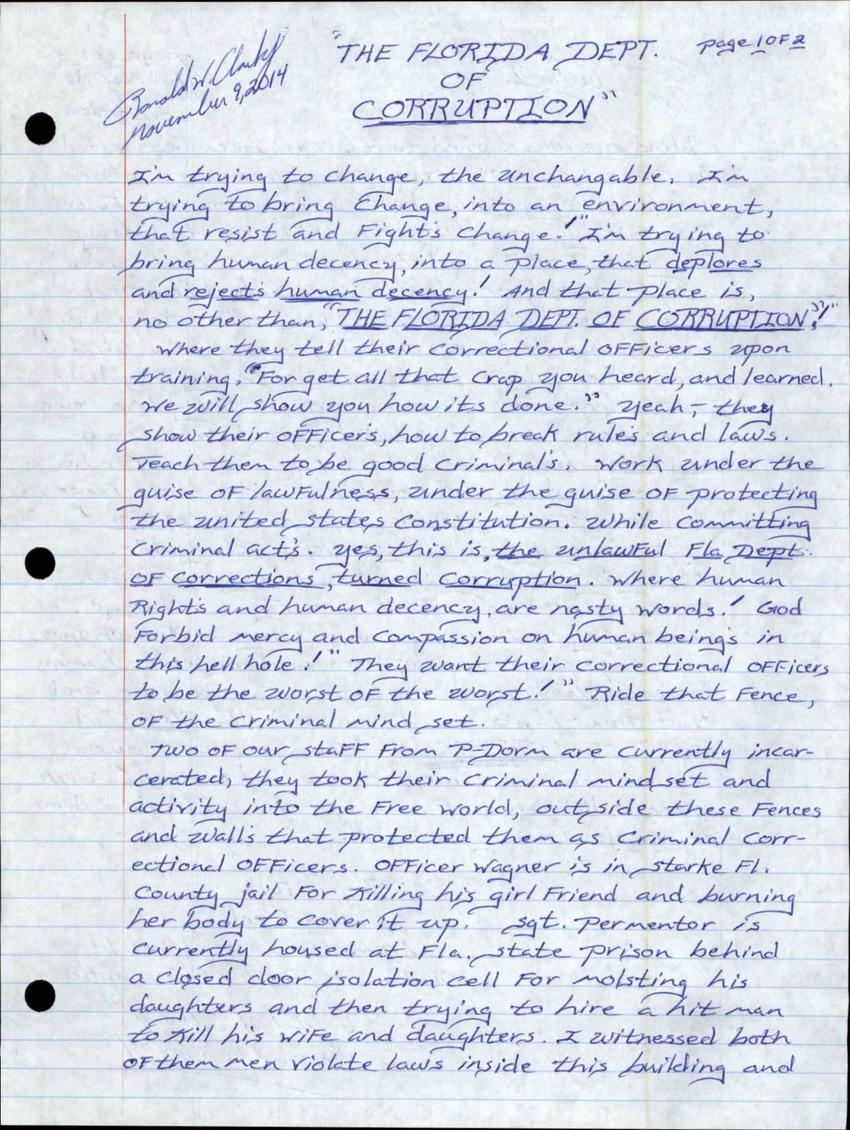 "THE FLORIDA DEPT. Page 1 OF 2
OF
CORRUPTION"
Ronald W. Clark Jr
November 9, 2014
I'm trying to change, the unchangable. I'm
trying to bring Change, into an environment,
that resist and Fight's Change!" I'm trying to
bring human decency, into a place, that deplores
and rejects human decency! And that place is,
no other than, "THE FLORIDA DEPT. OF CORRUPTION"!"
where they tell their correctional OFFicers upon
training, "Forget all that Crap you heard, and learned.
We will show you how its done." Yeah, they
show their OFFicer's, how to break rule's and law's.
Teach them to be good Criminal's. Work under the
guise OF lawFulness, under the guise OF protecting
the united states Constitution. While Committing
Criminal act's. Yes, this is, the unlawFul Fla. Dept.
OF Corrections, turned Corruption. Where human
Right's and human decency, are nasty words! God
Forbid mercy and Compassion on human being's in
this hell hole!" They want their Correctional OFFicers
to be the worst OF the worst!" Ride that Fence,
OF the Criminal mind set.
Two OF our staFF From P-Dorm are currently incar-
cerated, they took their Criminal mind set and
activity into the Free world, outside these Fences
and wall's that protected them as Criminal Corr-
ectional OFFicers. OFFicer Wagner is in Starke Fl.
County jail For Killing his girl Friend and burning
her body to cover it up. Sgt. Permentor is
Currently housed at Fla. State Prison behind
a Closed door isolation cell For molsting his
daughters and then trying to hire a hit man
to Kill his wiFe and daughters. I witnessed both
OF them men violate laws inside this building and